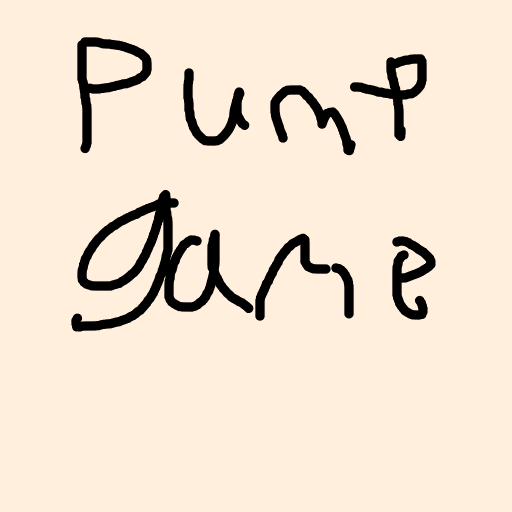 Pump
game